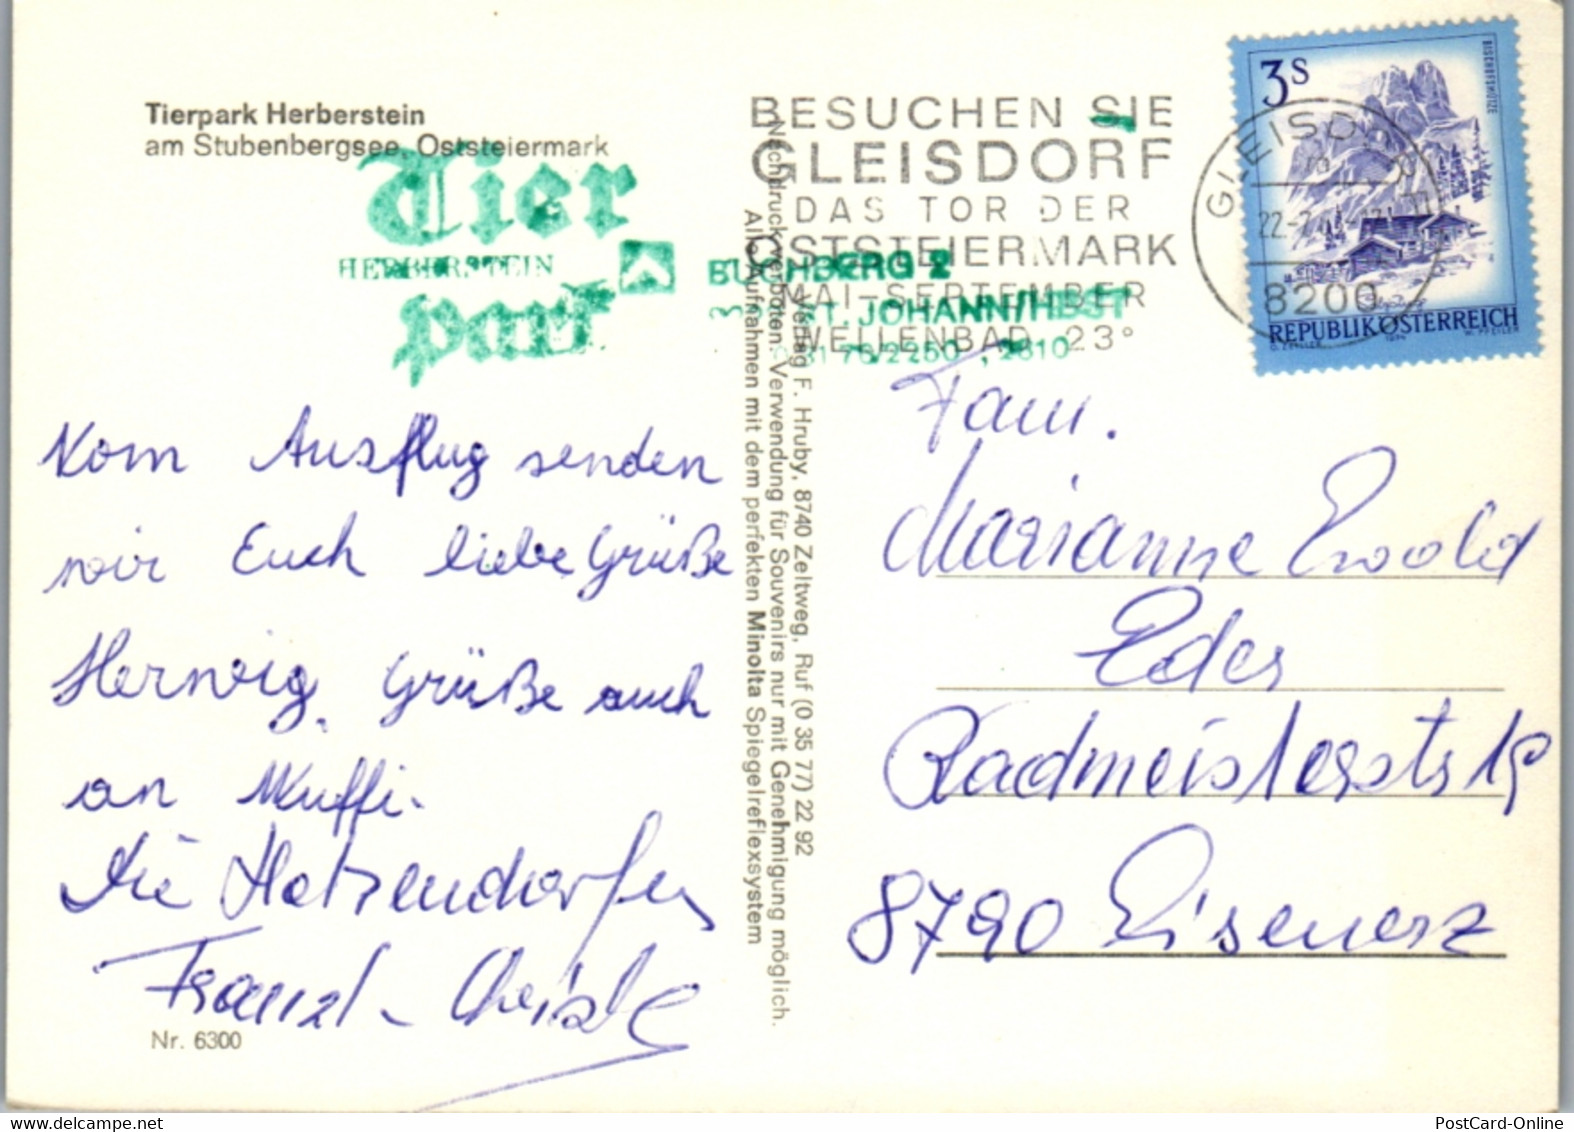 Tierpark Herberstein
am Stubenbergsee, Oststeiermark
Tier
HERBERSTEIN
park
BUCHBERG 2
ST. JOHANN/HBST
BESUCHEN SIE
GLEISDORF
DAS TOR DER
OSTSTEIERMARK
MAI-SEPTEMBER
WELLENBAD 23°
GLEISDORF
8200
3 S
BISCHOFSMÜTZE
REPUBLIK ÖSTERREICH
Vom Ausflug senden
wir Euch liebe Grüße
Herwig. Grüße auch
an Muffi.
Die Hotzendorfer
Franzl - Christl
Nr. 6300
Verlag F. Hruby, 8740 Zeltweg, Ruf (0 35 77) 22 92
Nachdruck verboten. Verwendung für Souvenirs nur mit Genehmigung möglich.
Alle Aufnahmen mit dem perfekten Minolta Spiegelreflexsystem
Fam.
Marianne Ewald
Eder
Radmeisterstr 19
8790 Eisenerz
PostCard-Online